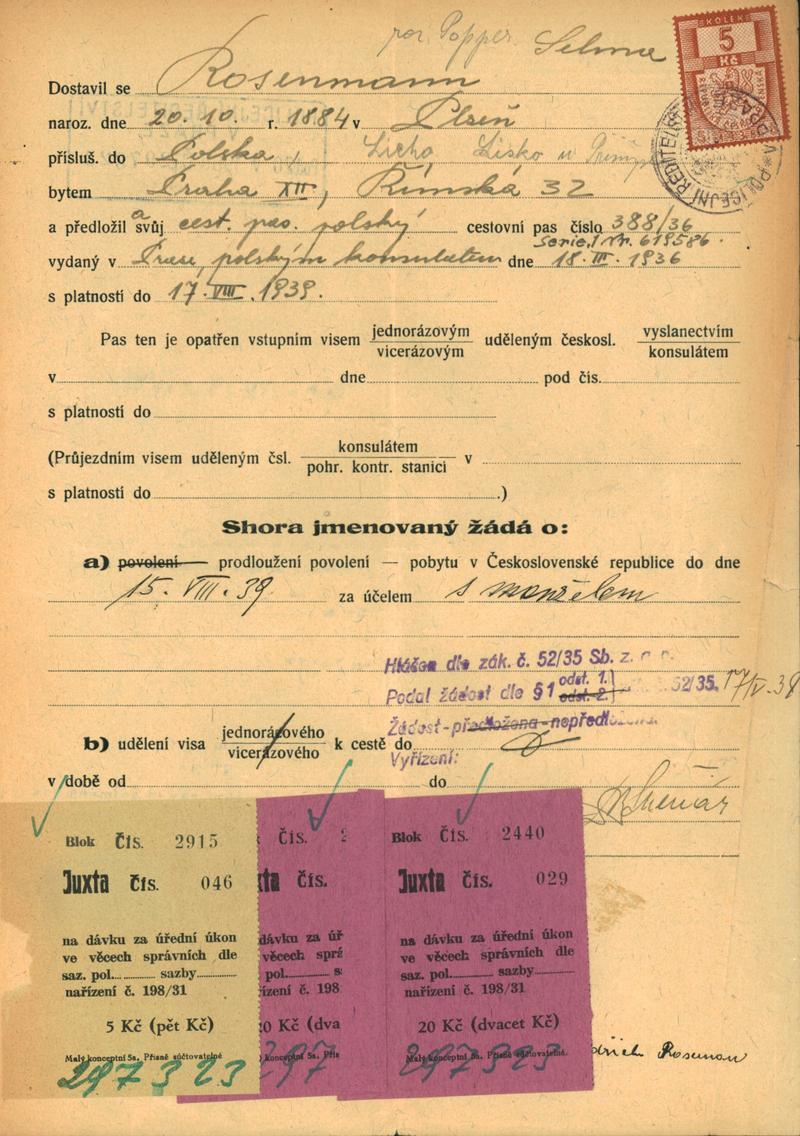 roz. Popper Selma
KOLEK
5
Kč
Dostavil se Rosenmann
naroz. dne 20. 10. r. 1884 v Plzeň
přísluš. do Polska, Licho, Lisko u
bytem Praha XII, Římská 32
a předložil a svůj cest. pas. polský cestovní pas číslo 388/36
Serie I Nr. 619586.
vydaný v Praze, polským konsulatem dne 18. III. 1936
s platností do 17. VIII. 1939.
Pas ten je opatřen vstupním visem jednorázovým vícerázovým uděleným českosl. vyslanectvím konsulátem
v dne pod čís.
s platností do
(Průjezdním visem uděleným čsl. konsulátem pohr. kontr. stanicí v
s platností do .)
Shora jmenovaný žádá o:
a) povolení — prodloužení povolení — pobytu v Československé republice do dne
15. VIII. 39 za účelem s manželem
Hlášen dle zák. č. 52/35 Sb. z. a n.
Podal žádost dle § 1 odst. 1. odst. 2. 52/35.
Žádost - předložena - nepředložena.
b) udělení visa jednorázového vícerázového k cestě do
Vyřízení:
v době od do
Blok Čís. 2915
Juxta Čís. 046
na dávku za úřední úkon
ve věcech správních dle
saz. pol. sazby
nařízení č. 198/31
5 Kč (pět Kč)
Malý konceptní 5a. Přísně súčtovatelné
297323
Čís. 2
xta Čís.
dávku za úř
věcech sprá
pol. s
ízení č. 198
0 Kč (dva
konceptní 5a. Přís
297
Blok Čís. 2440
Juxta Čís. 029
na dávku za úřední úkon
ve věcech správních dle
saz. pol. sazby
nařízení č. 198/31
20 Kč (dvacet Kč)
Malý konceptní 5a. Přísně súčtovatelné.
297323
drich Rosenman